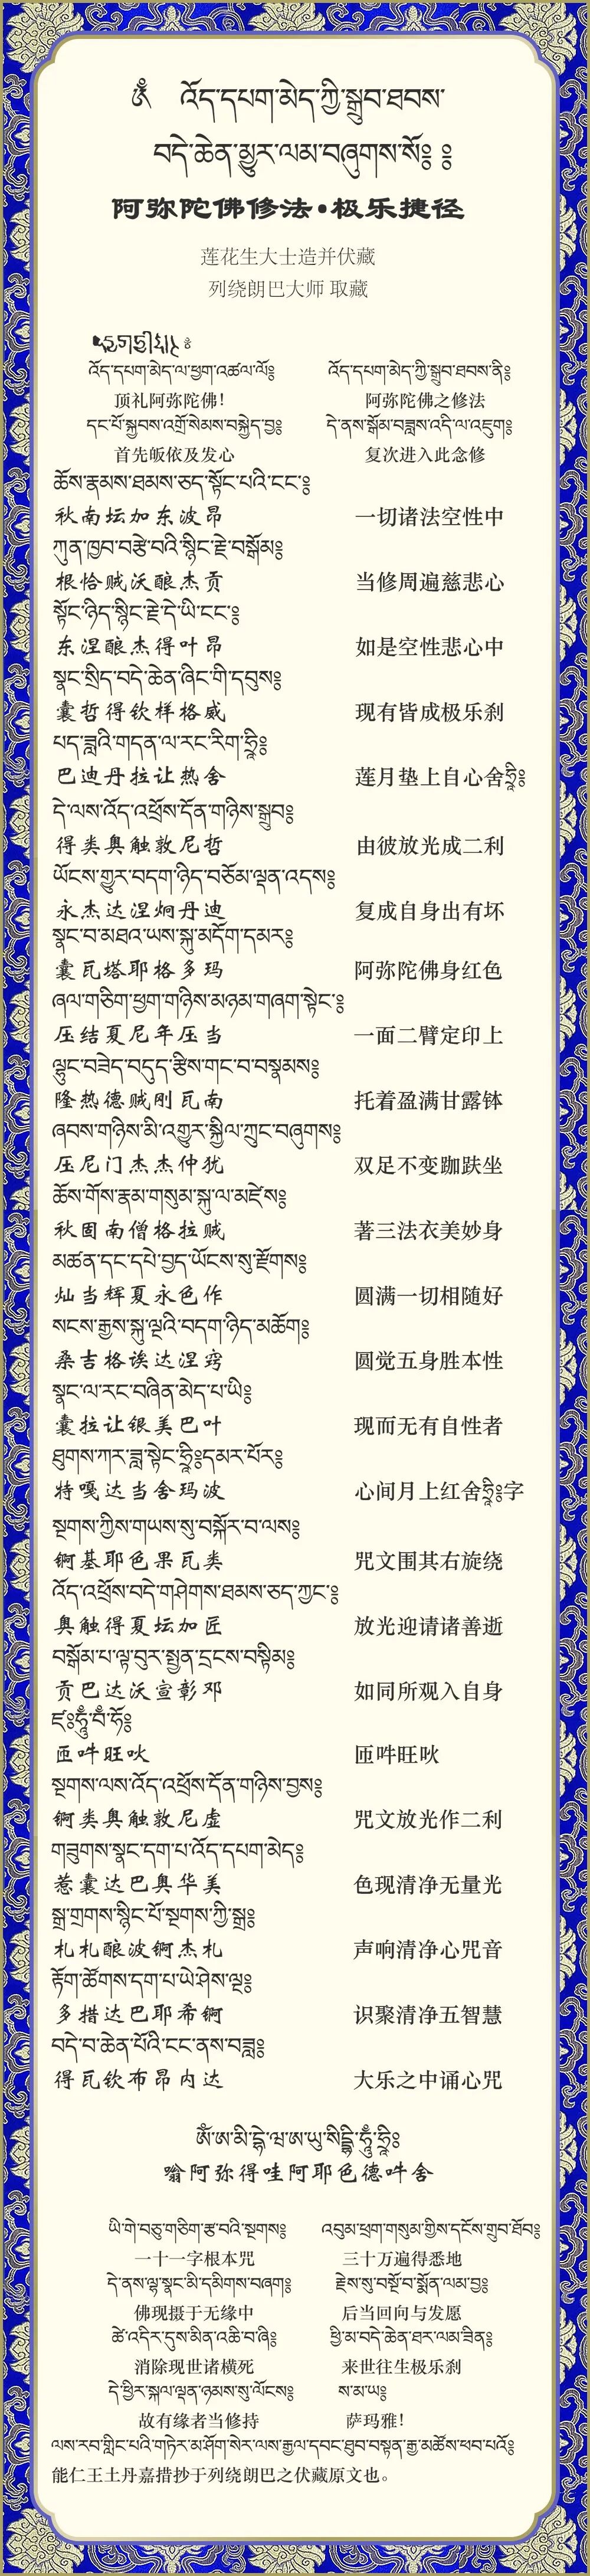 ༀ འོད་དཔག་མེད་ཀྱི་སྒྲུབ་ཐབས་
བདེ་ཆེན་མྱུར་ལམ་བཞུགས་སོ༔ ༔
阿弥陀佛修法•极乐捷径
莲花生大士造并伏藏
列绕朗巴大师 取藏
འོད་དཔག་མེད་ལ་ཕྱག་འཚལ་ལོ༔ འོད་དཔག་མེད་ཀྱི་སྒྲུབ་ཐབས་ནི༔
顶礼阿弥陀佛！ 阿弥陀佛之修法
དང་པོ་སྐྱབས་འགྲོ་སེམས་བསྐྱེད་བྱ༔ དེ་ནས་སྒོམ་བཟླས་འདི་ལ་འཇུག༔
首先皈依及发心 复次进入此念修
ཆོས་རྣམས་ཐམས་ཅད་སྟོང་པའི་ངང་༔
秋南坛加东波昂 一切诸法空性中
ཀུན་ཁྱབ་བརྩེ་བའི་སྙིང་རྗེ་བསྒོམ༔
根恰贼沃酿杰贡 当修周遍慈悲心
སྟོང་ཉིད་སྙིང་རྗེ་དེ་ཡི་ངང་༔
东涅酿杰得叶昂 如是空性悲心中
སྣང་སྲིད་བདེ་ཆེན་ཞིང་གི་དབུས༔
囊哲得钦样格威 现有皆成极乐刹
པད་ཟླའི་གདན་ལ་རང་རིག་ཧྲཱིཿ
巴迪丹拉让热舍 莲月垫上自心舍ཧྲཱིཿ
དེ་ལས་འོད་འཕྲོས་དོན་གཉིས་སྒྲུབ༔
得类奥触敦尼哲 由彼放光成二利
ཡོངས་གྱུར་བདག་ཉིད་བཅོམ་ལྡན་འདས༔
永杰达涅炯丹迪 复成自身出有坏
སྣང་བ་མཐའ་ཡས་སྐུ་མདོག་དམར༔
囊瓦塔耶格多玛 阿弥陀佛身红色
ཞལ་གཅིག་ཕྱག་གཉིས་མཉམ་གཞག་སྟེང་༔
压结夏尼年压当 一面二臂定印上
ལྷུང་བཟེད་བདུད་རྩིས་གང་བ་བསྣམས༔
隆热德贼刚瓦南 托着盈满甘露钵
ཞབས་གཉིས་མི་འགྱུར་སྐྱིལ་ཀྲུང་བཞུགས༔
压尼门杰杰仲犹 双足不变跏趺坐
ཆོས་གོས་རྣམ་གསུམ་སྐུ་ལ་མཛེས༔
秋固南僧格拉贼 著三法衣美妙身
མཚན་དང་དཔེ་བྱད་ཡོངས་སུ་རྫོགས༔
灿当辉夏永色作 圆满一切相随好
སངས་རྒྱས་སྐུ་ལྔའི་བདག་ཉིད་མཆོག༔
桑吉格诶达涅窍 圆觉五身胜本性
སྣང་ལ་རང་བཞིན་མེད་པ་ཡི༔
囊拉让银美巴叶 现而无有自性者
ཐུགས་ཀར་ཟླ་སྟེང་ཧྲཱིཿདམར་པོར༔
特嘎达当舍玛波 心间月上红舍ཧྲཱིཿ字
སྔགས་ཀྱིས་གཡས་སུ་བསྐོར་བ་ལས༔
锕基耶色果瓦类 咒文围其右旋绕
འོད་འཕྲོས་བདེ་གཤེགས་ཐམས་ཅད་ཀྱང་༔
奥触得夏坛加匠 放光迎请诸善逝
བསྒོམ་པ་ལྟ་བུར་སྤྱན་དྲངས་བསྟིམ༔
贡巴达沃宣彰邓 如同所观入自身
ཛཿཧཱུྃ་བཾ་ཧོ༔
匝吽旺吙 匝吽旺吙
སྔགས་ལས་འོད་འཕྲོས་དོན་གཉིས་བྱས༔
锕类奥触敦尼虚 咒文放光作二利
གཟུགས་སྣང་དག་པ་འོད་དཔག་མེད༔
惹囊达巴奥华美 色现清净无量光
སྒྲ་གྲགས་སྙིང་པོ་སྔགས་ཀྱི་སྒྲ༔
札札酿波锕杰札 声响清净心咒音
རྟོག་ཚོགས་དག་པ་ཡེ་ཤེས་ལྔ༔
多措达巴耶希锕 识聚清净五智慧
བདེ་བ་ཆེན་པོའི་ངང་ནས་བཟླ༔
得瓦钦布昂内达 大乐之中诵心咒
ༀ་ཨ་མི་དྷེ་ཝ་ཨ་ཡུ་སིདྡྷི་ཧཱུྃ་ཧྲཱིཿ
嗡阿弥得哇阿耶色德吽舍
ཡི་གེ་བཅུ་གཅིག་རྩ་བའི་སྔགས༔ འབུམ་ཕྲག་གསུམ་གྱིས་དངོས་གྲུབ་ཐོབ༔
一十一字根本咒 三十万遍得悉地
དེ་ནས་ལྷ་སྣང་མི་དམིགས་བཞག༔ རྗེས་སུ་བསྔོ་བ་སྨོན་ལམ་བྱ༔
佛现摄于无缘中 后当回向与发愿
ཚེ་འདིར་དུས་མིན་འཆི་བ་ཞི༔ ཕྱི་མ་བདེ་ཆེན་ཐར་ལམ་ཟིན༔
消除现世诸横死 来世往生极乐刹
དེ་ཕྱིར་སྐལ་ལྡན་ཉམས་སུ་ལོངས༔ ས་མ་ཡ༔
故有缘者当修持 萨玛雅！
ལས་རབ་གླིང་པའི་གཏེར་མ་ཤོག་སེར་ལས་རྒྱལ་དབང་ཐུབ་བསྟན་རྒྱ་མཚོས་ཕབ་པའོ༔
能仁王土丹嘉措抄于列绕朗巴之伏藏原文也。